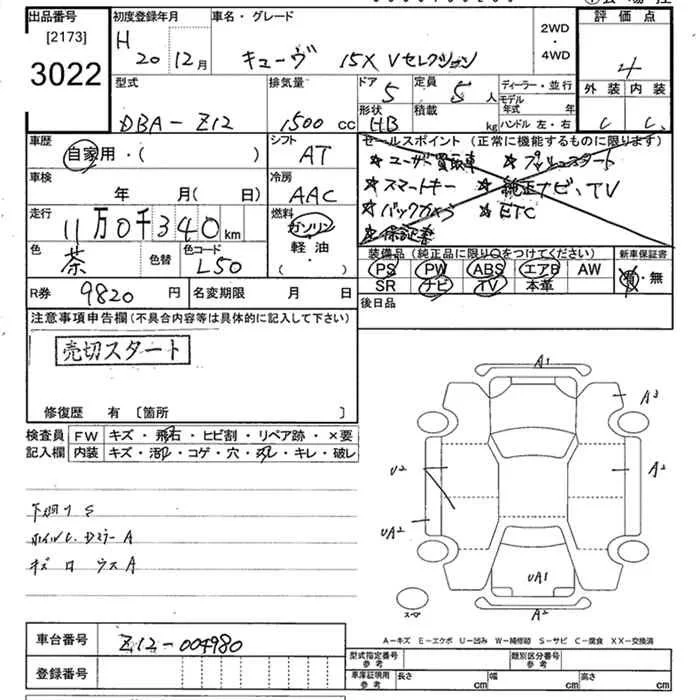 出品番号
[2173]
3022
初度登録年月
H 20 12月
車名・グレード
キューヴ 15X Vセレクション
2WD
・
4WD
評価点
4
外装 内装
C C
型式
DBA-Z12
排気量
1500 cc
ドア
5
形状
HB
定員
5人
積載
kg
ディーラー・並行
モデル年式 年
ハンドル 左・右
車歴
自家用・( )
シフト
AT
車検
年 月( 日)
冷房
AAC
走行
11万0千340km
燃料
ガソリン
軽・油
( ・ )
色
茶
色替
色コード
L50
セールスポイント(正常に機能するものに限ります)
☆ユーザー買取車 ☆プッシュスタート
☆スマートキー ☆純正ナビ、TV
☆バックカメラ ☆ETC
☆保証書
装備品(純正品に限り○をつけてください)
PS PW ABS エアB AW
SR ナビ TV 本革
新車保証書
有・無
R券 9820円
名変期限 月 日
後日品
注意事項申告欄(不具合内容等は具体的に記入して下さい)
売切スタート
修復歴 有〔箇所 〕
検査員
記入欄
FW キズ・飛石・ヒビ割・リペア跡・×要
内装 キズ・汚れ・コゲ・穴・スレ・キレ・破レ
下廻りS
ホイルC、DミラーA
キズ ウスA
A1
A3
U2
A2
UA2
UA1
A2
スペア
A-キズ E-エクボ U-凹み W-補修跡 S-サビ C-腐食 XX-交換済
車台番号 Z12-004980
登録番号
型式指定番号
参考
類別区分番号
参考
車庫証明用
参考
長さ cm 幅 cm 高さ cm